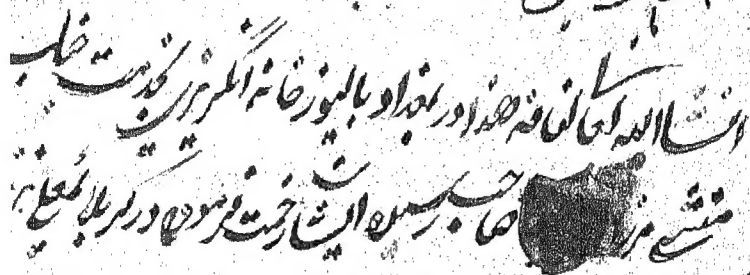 انشاالله تعالی لفافه هذا در بغداد بالیوزخانه انگریزی بخدمت جناب
منشی میرزا صاحب رسیده ایشان زحمت فرموده در کربلای معلی